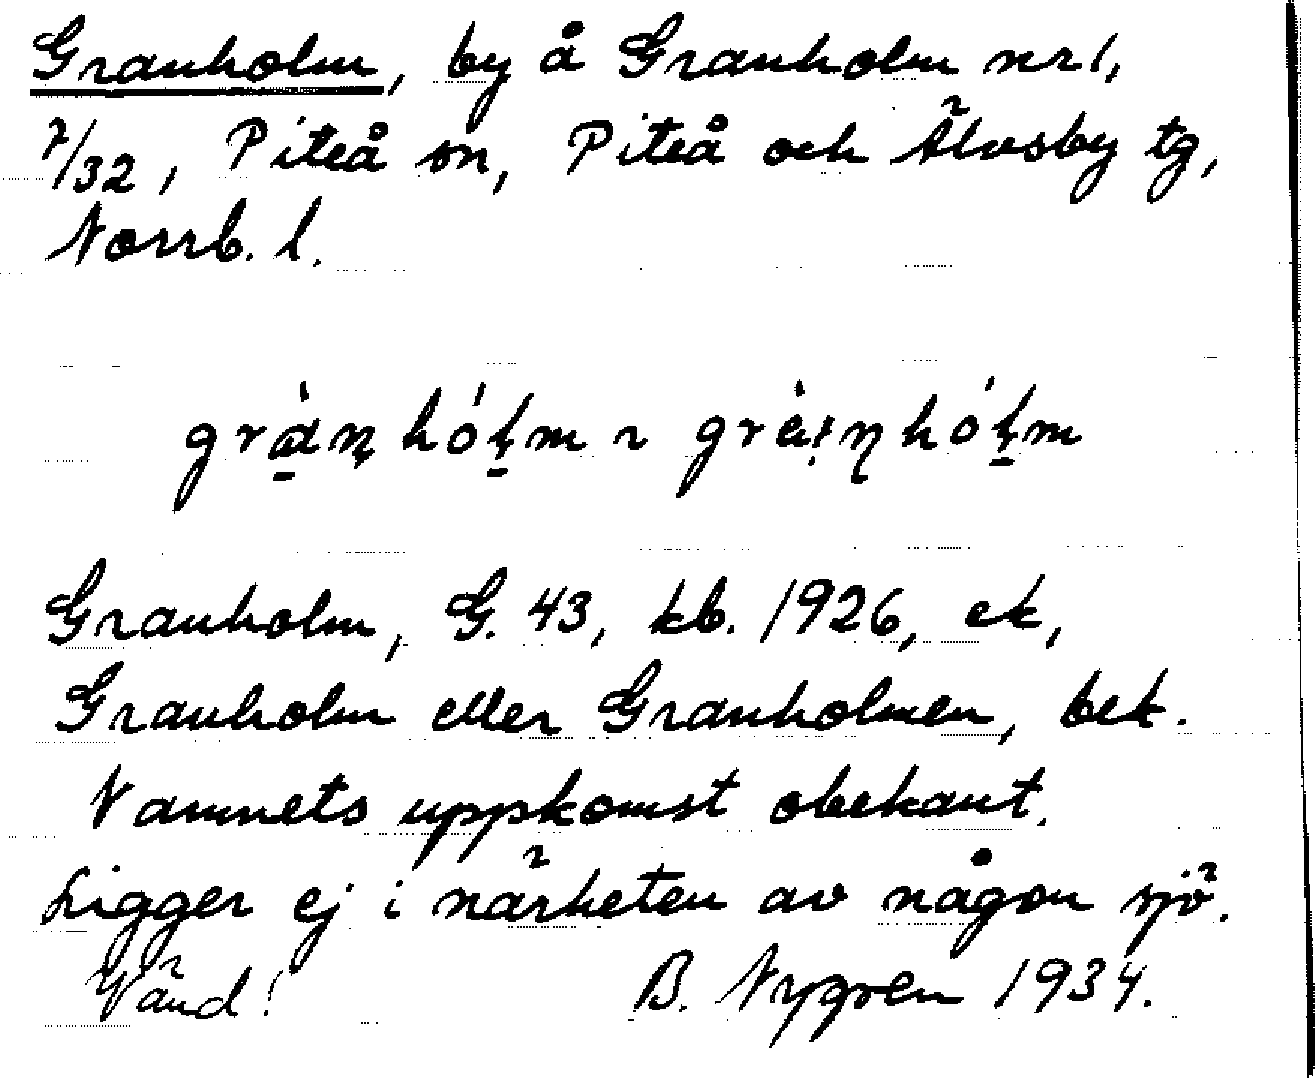 Granholm, by å Granholm nr 1,
7/32, Piteå sn, Piteå och Älvsby tg,
Norrb. l.
Granholm, G. 43, kb. 1926, ek,
Granholm eller Granholmen, bek.
Namnets uppkomst obekant.
Ligger ej i närheten av någon sjö.
Vänd! B. Nygren 1934.